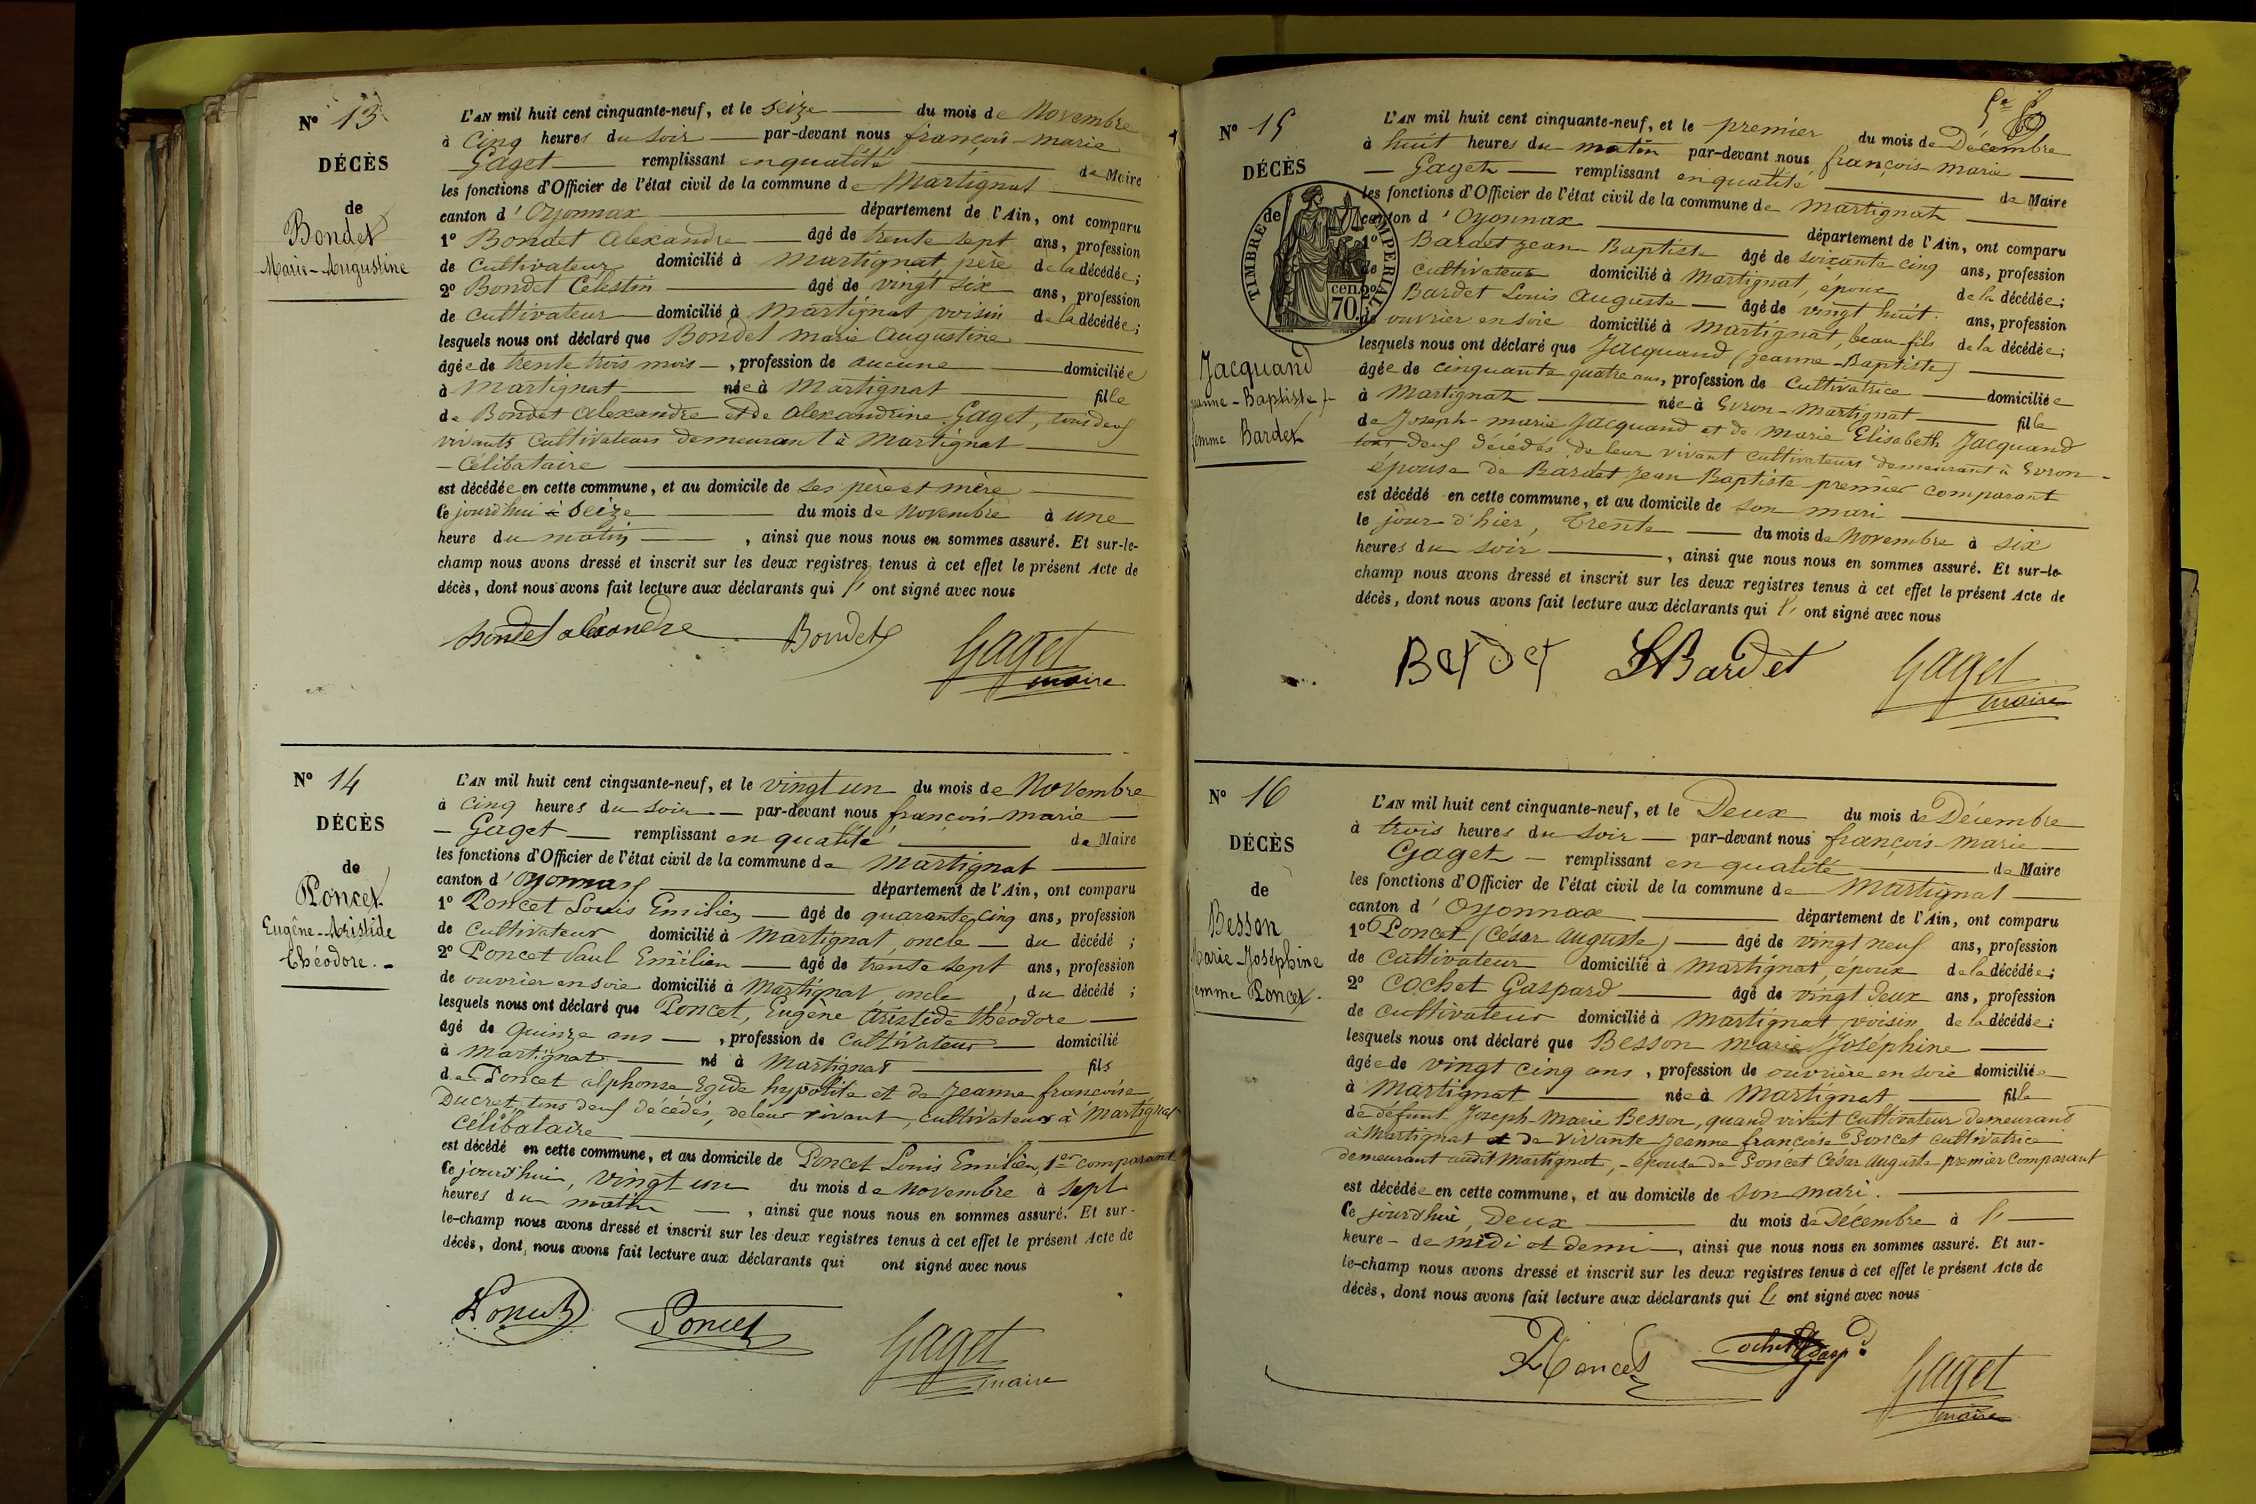 N° 13
DÉCÈS
de
Bondet
Marie-Augustine
L'AN mil huit cent cinquante-neuf, et le seize du mois de Novembre
à cinq heures du soir par-devant nous françois-marie
Gaget remplissant en qualité de Maire
les fonctions d'Officier de l'état civil de la commune de Martignat
canton d'Oyonnax département de l'Ain, ont comparu
1° Bondet Alexandre âgé de trente sept ans, profession
de cultivateur domicilié à Martignat père de la décédée;
2° Bondet Célestin âgé de vingt six ans, profession
de cultivateur domicilié à Martignat voisin de la décédée;
lesquels nous ont déclaré que Bondet marie augustine
âgée de trente trois mois, profession de aucune domiciliée
à Martignat née à Martignat fille
de Bondet alexandre et de alexandrine Gaget, tous deux
vivants cultivateurs demeurant à Martignat
Célibataire
est décédée en cette commune, et au domicile de ses père et mère
Ce jourd'hui seize du mois de Novembre à une
heure du matin, ainsi que nous nous en sommes assuré. Et sur-le-
champ nous avons dressé et inscrit sur les deux registres tenus à cet effet le présent Acte de
décès, dont nous avons fait lecture aux déclarants qui l' ont signé avec nous
Bondet alexandre Bondet Gaget
maire
N° 14
DÉCÈS
de
Poncet
Eugène-Aristide
Théodore.
L'AN mil huit cent cinquante-neuf, et le vingt un du mois de Novembre
à cinq heures du soir par-devant nous françois-marie
Gaget remplissant en qualité de Maire
les fonctions d'Officier de l'état civil de la commune de Martignat
canton d'Oyonnax département de l'Ain, ont comparu
1° Poncet Louis Emilien âgé de quarante cinq ans, profession
de cultivateur domicilié à Martignat, oncle du décédé;
2° Poncet Paul Emilien âgé de trente sept ans, profession
de ouvrier en soie domicilié à Martignat, oncle, du décédé;
lesquels nous ont déclaré que Poncet, Eugène Aristide théodore
âgé de quinze ans, profession de cultivateur domicilié
à Martignat né à Martignat fils
de Poncet alphonse Egide hypolite et de Jeanne françoise
Ducret, tous deux décédés, de leur vivant, cultivateurs à Martignat
Célibataire
est décédé en cette commune, et au domicile de Poncet Louis Emilien, 1er comparant
Ce jourd'hui, vingt un du mois de Novembre à sept
heures du matin, ainsi que nous nous en sommes assuré. Et sur-
le-champ nous avons dressé et inscrit sur les deux registres tenus à cet effet le présent Acte de
décès, dont nous avons fait lecture aux déclarants qui ont signé avec nous
Poncet Poncet Gaget
maire
N° 15
DÉCÈS
de
TIMBRE IMPERIAL
70 cen.
Jacquand
Jeanne-Baptiste
femme Bardet
L'AN mil huit cent cinquante-neuf, et le premier du mois de Décembre
à huit heures du matin par-devant nous françois-marie
Gaget remplissant en qualité de Maire
les fonctions d'Officier de l'état civil de la commune de Martignat
canton d'Oyonnax département de l'Ain, ont comparu
1° Bardet Jean Baptiste âgé de soixante cinq ans, profession
de cultivateur domicilié à Martignat, époux de la décédée;
2° Bardet Louis Auguste âgé de vingt huit ans, profession
de ouvrier en soie domicilié à Martignat, beau fils de la décédée;
lesquels nous ont déclaré que Jacquand (Jeanne-Baptiste)
âgée de cinquante quatre ans, profession de Cultivatrice domiciliée
à Martignat née à Evron-Martignat fille
de Joseph-marie Jacquand et de Marie Elisabeth Jacquand
tous deux décédés de leur vivant cultivateurs demeurant à Evron
épouse de Bardet Jean Baptiste premier comparant
est décédé en cette commune, et au domicile de son mari
le jour d'hier, trente du mois de Novembre à six
heures du soir, ainsi que nous nous en sommes assuré. Et sur-le-
champ nous avons dressé et inscrit sur les deux registres tenus à cet effet le présent Acte de
décès, dont nous avons fait lecture aux déclarants qui l' ont signé avec nous
Bardet LBardet Gaget
maire
N° 16
DÉCÈS
de
Besson
Marie-Joséphine
femme Poncet.
L'AN mil huit cent cinquante-neuf, et le Deux du mois de Décembre
à trois heures du soir par-devant nous françois-marie
Gaget remplissant en qualité de Maire
les fonctions d'Officier de l'état civil de la commune de Martignat
canton d'Oyonnax département de l'Ain, ont comparu
1° Poncet (César auguste) âgé de vingt neuf ans, profession
de cultivateur domicilié à Martignat, époux de la décédée;
2° Cochet Gaspard âgé de vingt deux ans, profession
de cultivateur domicilié à Martignat voisin de la décédée;
lesquels nous ont déclaré que Besson marie Joséphine
âgée de vingt cinq ans, profession de ouvrière en soie domiciliée
à Martignat née à Martignat fille
de défunt Joseph-Marie Besson, quand vivait cultivateur demeurant
à Martignat et de vivante Jeanne françoise Poncet cultivatrice
demeurant audit Martignat, épouse de Poncet César Auguste premier comparant
est décédée en cette commune, et au domicile de son mari.
Ce jourd'hui, Deux du mois de Décembre à l'
heure de midi et demi, ainsi que nous nous en sommes assuré. Et sur-
le-champ nous avons dressé et inscrit sur les deux registres tenus à cet effet le présent Acte de
décès, dont nous avons fait lecture aux déclarants qui l' ont signé avec nous
Poncet Cochet Gaspd Gaget
maire